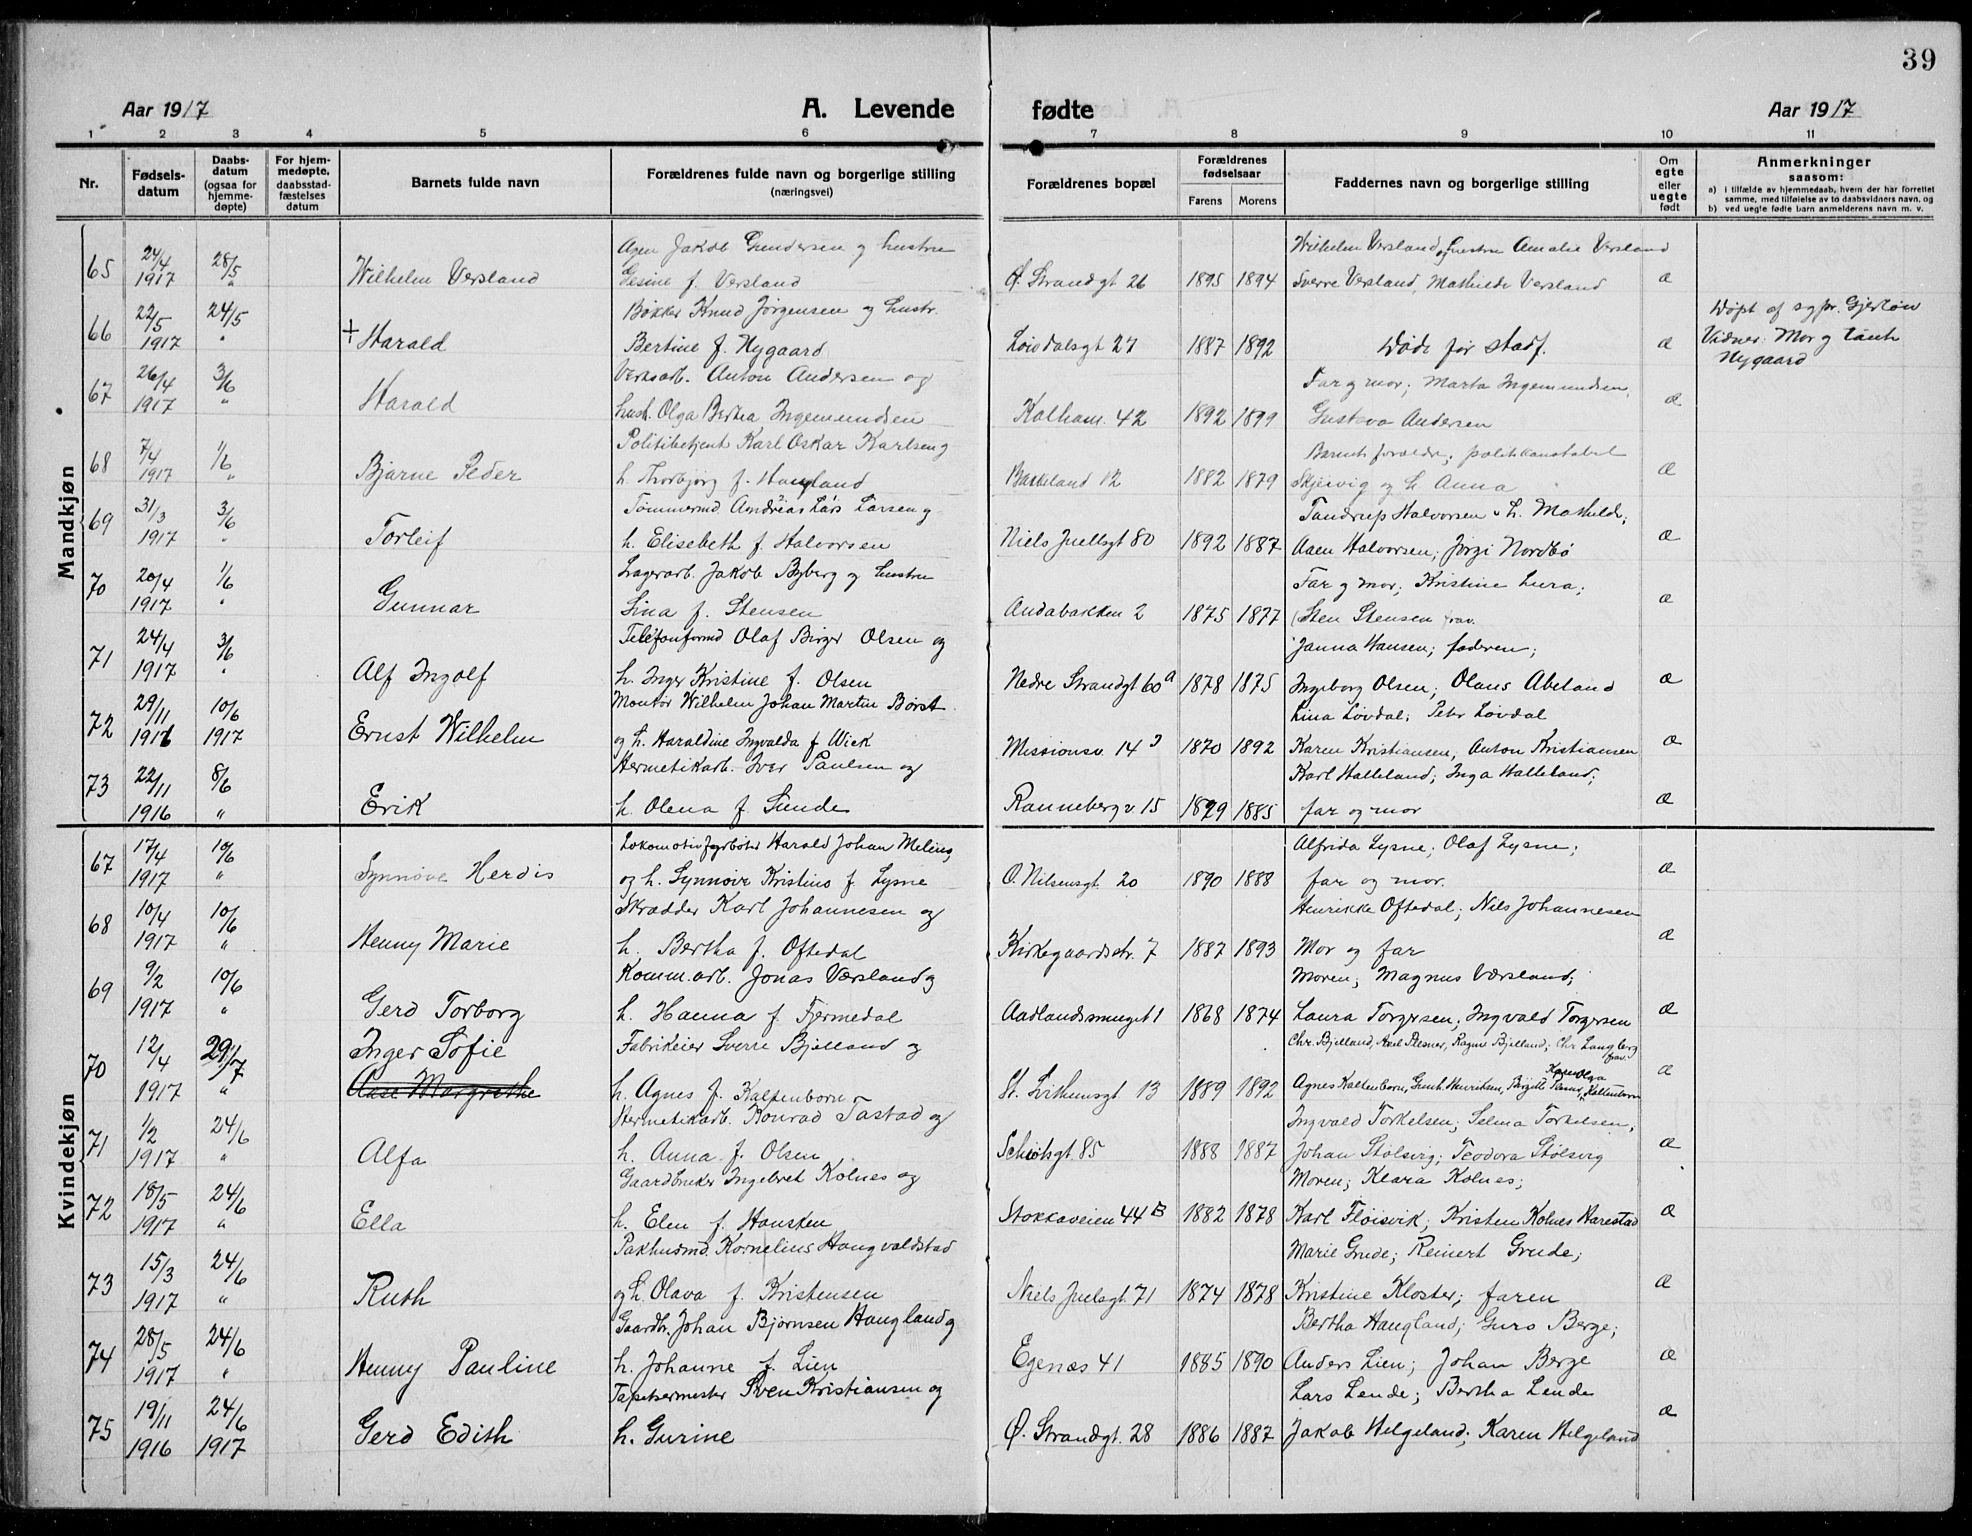 39
Aar 1917 A. Levende fødte Aar 1917
1 2 3 4 5 6 7 8 9 10 11
Nr. Fødsels-datum Daabs-datum (ogsaa for hjemme-døpte) For hjem-medøpte, daabsstad-fæstelses datum Barnets fulde navn Forældrenes fulde navn og borgerlige stilling (næringsvei) Forældrenes bopæl Forældrenes fødselsaar Farens Morens Faddernes navn og borgerlige stilling Om egte eller uegte født Anmerkninger saasom:
a) i tilfælde av hjemmedaab, hvem der har forrettet samme, med tilføielse av to daabsvidners navn, og
b) ved uegte fødte barn anmelderens navn m. v.
Mandkjøn
Agen Jakob Gundersen og hustru Wilhelm Versland og hustru Amalie Versland
65 24/4 1917 28/5 " Wilhelm Versland Gesine f. Versland Ø. Strandgt 26 1895 1894 Sverre Versland, Mathilde Versland æ
Bøkker Knud Jørgensen og hustr. Døpt af sgpr. Gjerløw
66 22/5 1917 24/5 " † Harald Bertine f. Nygaard Løvdalsgt 27 1887 1892 Døde før stadf. æ Vidner: Mor og tante
Nygaard
Verksarb. Anton Andersen og Far og mor; Marta Ingemundsen,
67 26/4 1917 3/6 " Harald hust. Olga Bertha Ingemundsen Kalham. 42 1892 1899 Gustava Andersen æ
Politibetjent Karl Oskar Karlsen og Barnets forældre; politikonstabel
68 7/4 1917 1/6 " Bjarne Peder h. Thorbjørg f. Haugland Bakkeland 12 1882 1879 Skjervig og h. Anna æ
Tømmermd Andreas Lars Larsen og Tandrup Halvorsen & h. Mathilde;
69 31/3 1917 3/6 " Torleif h. Elisebeth f. Halvorsen Niels Juelsgt 80 1892 1887 Aaen Halvorsen; Jørgi Nordbø æ
Lagerarb. Jakob Byberg og hustru Far og mor; Kristine Lura;
70 20/4 1917 1/6 " Gunnar Lina f. Stensen Andabakken 2 1875 1877 Sten Stensen frav. æ
Telefonformd Olaf Birger Olsen og Janna Hansen; faderen;
71 24/4 1917 3/6 " Alf Ingolf h. Inger Kristine f. Olsen Nedre Strandgt 60a 1878 1875 Ingeborg Olsen; Olaus Abeland æ
Montør Wilhelm Johan Martin Børst Lina Løvdal; Petr Løvdal
72 29/11 1916 10/6 1917 Ernst Wilhelm og h. Haraldine Ingvalda f Wiek Missionsv. 14 1870 1892 Karen Kristiansen, Anton Kristiansen æ
Hermetikarb. Iver Paulsen og Karl Halleland; Inga Halleland;
73 22/11 1916 8/6 " Erik h. Olena f. Sunde Ranneberg v. 15 1879 1885 far og mor æ
Kvindekjøn
Lokomotivfyrbøter Harald Johan Meling Alfrida Lysne; Olaf Lysne;
67 17/4 1917 10/6 " Synnøve Herdis og h. Synnøve Kristine f. Lysne O. Nilsensgt. 20 1890 1888 far og mor. æ
Skrædder Karl Johannesen og Henrikke Oftedal; Nils Johannesen
68 10/4 1917 10/6 " Henny Marie h. Bertha f. Oftedal Kirkegaardsstr. 7 1887 1893 Mor og far æ
Komm.arb. Jonas Værsland og Moren; Magnus Værsland;
69 9/2 1917 10/6 " Gerd Torborg h. Hanna f. Fjermedal Aadlandsmuget 1 1868 1874 Laura Torgersen; Ingvald Torgersen æ
Inger Sofie Fabrikeier Sverre Bjelland og Chr. Bjelland, Axel Plesner, Ragna Bjelland; Chr Langberg frav.
70 12/4 1917 29/7 " Aase Margrethe h. Agnes f. Kaltenborn St. Svithunsgt 13 1889 1892 Agnes Kaltenborn, Gunh. Henriksen, Birgitte Plesner, Karen Olga Kaltenborn æ
Hermetikarb. Konrad Tastad og Ingvald Torkelsen; Selma Torkelsen;
71 1/2 1917 24/6 " Alfa h. Anna f. Olsen Schiøtsgt 85 1888 1887 Johan Stølsvig; Teodora Stølsvig æ
Gaardbruker Ingebret Kolnes og Moren; Klara Kolnes;
72 18/5 1917 24/6 " Ella h. Elen f. Hansken Stokkaveien 44B 1882 1878 Karl Fløisvik; Kristen Kolnes Harestad æ
Pakhusmd. Kornelius Haugvaldstad Marie Grude; Reinert Grude;
73 15/3 1917 24/6 " Ruth og h. Olava f. Kristensen Niels Juelsgt. 71 1874 1878 Kristine Kloster; faren æ
Gaardbr. Johan Bjørnsen Haugland og Bertha Haugland; Guro Berge;
74 28/5 1917 24/6 " Henny Pauline h. Johanne f. Lien Egenæs 41 1885 1890 Anders Lien; Johan Berge æ
Tapetsermester Sven Kristiansen og Lars Lende; Bertha Lende
75 19/11 1916 24/6 1917 Gerd Edith h. Gurine Ø. Strandgt. 28 1886 1887 Jakob Helgeland; Karen Helgeland æ